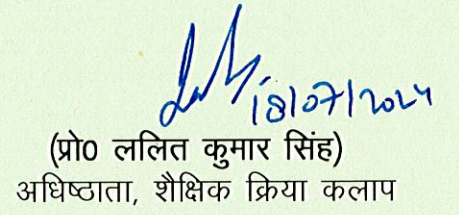 18/07/2024
(प्रो0 ललित कुमार सिंह)
अधिष्ठाता, शैक्षिक क्रिया कलाप